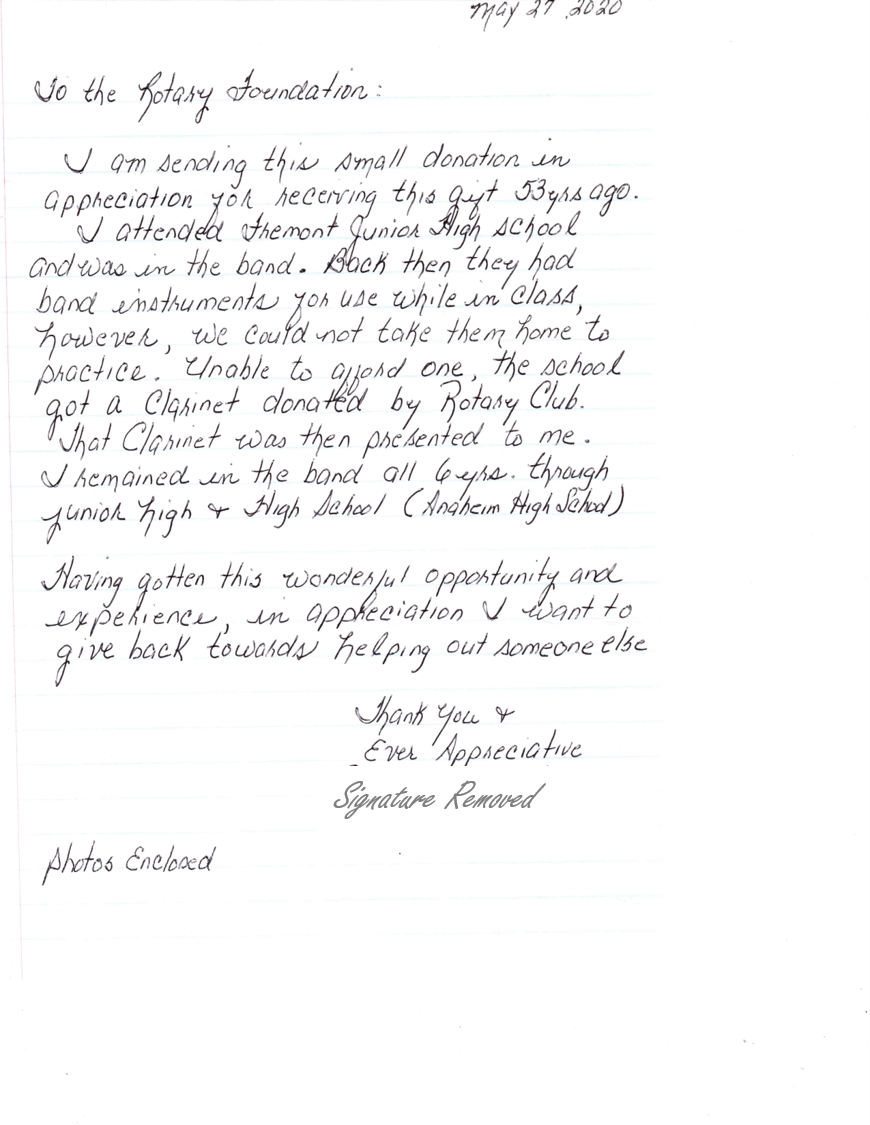 May 27, 2020
To the Rotary Foundation:
I am sending this small donation in
appreciation for receiving this gift 53yrs ago.
I attended Fremont Junior High School
and was in the band. Back then they had
band instruments for use while in class,
however, we could not take them home to
practice. Unable to afford one, the school
got a Clarinet donated by Rotary Club.
That Clarinet was then presented to me.
I remained in the band all 6 yrs. through
junior high & High School (Anaheim High School)
Having gotten this wonderful opportunity and
experience, in appreciation I want to
give back towards helping out someone else
Thank You &
Ever Appreciative
Signature Removed
photos Enclosed